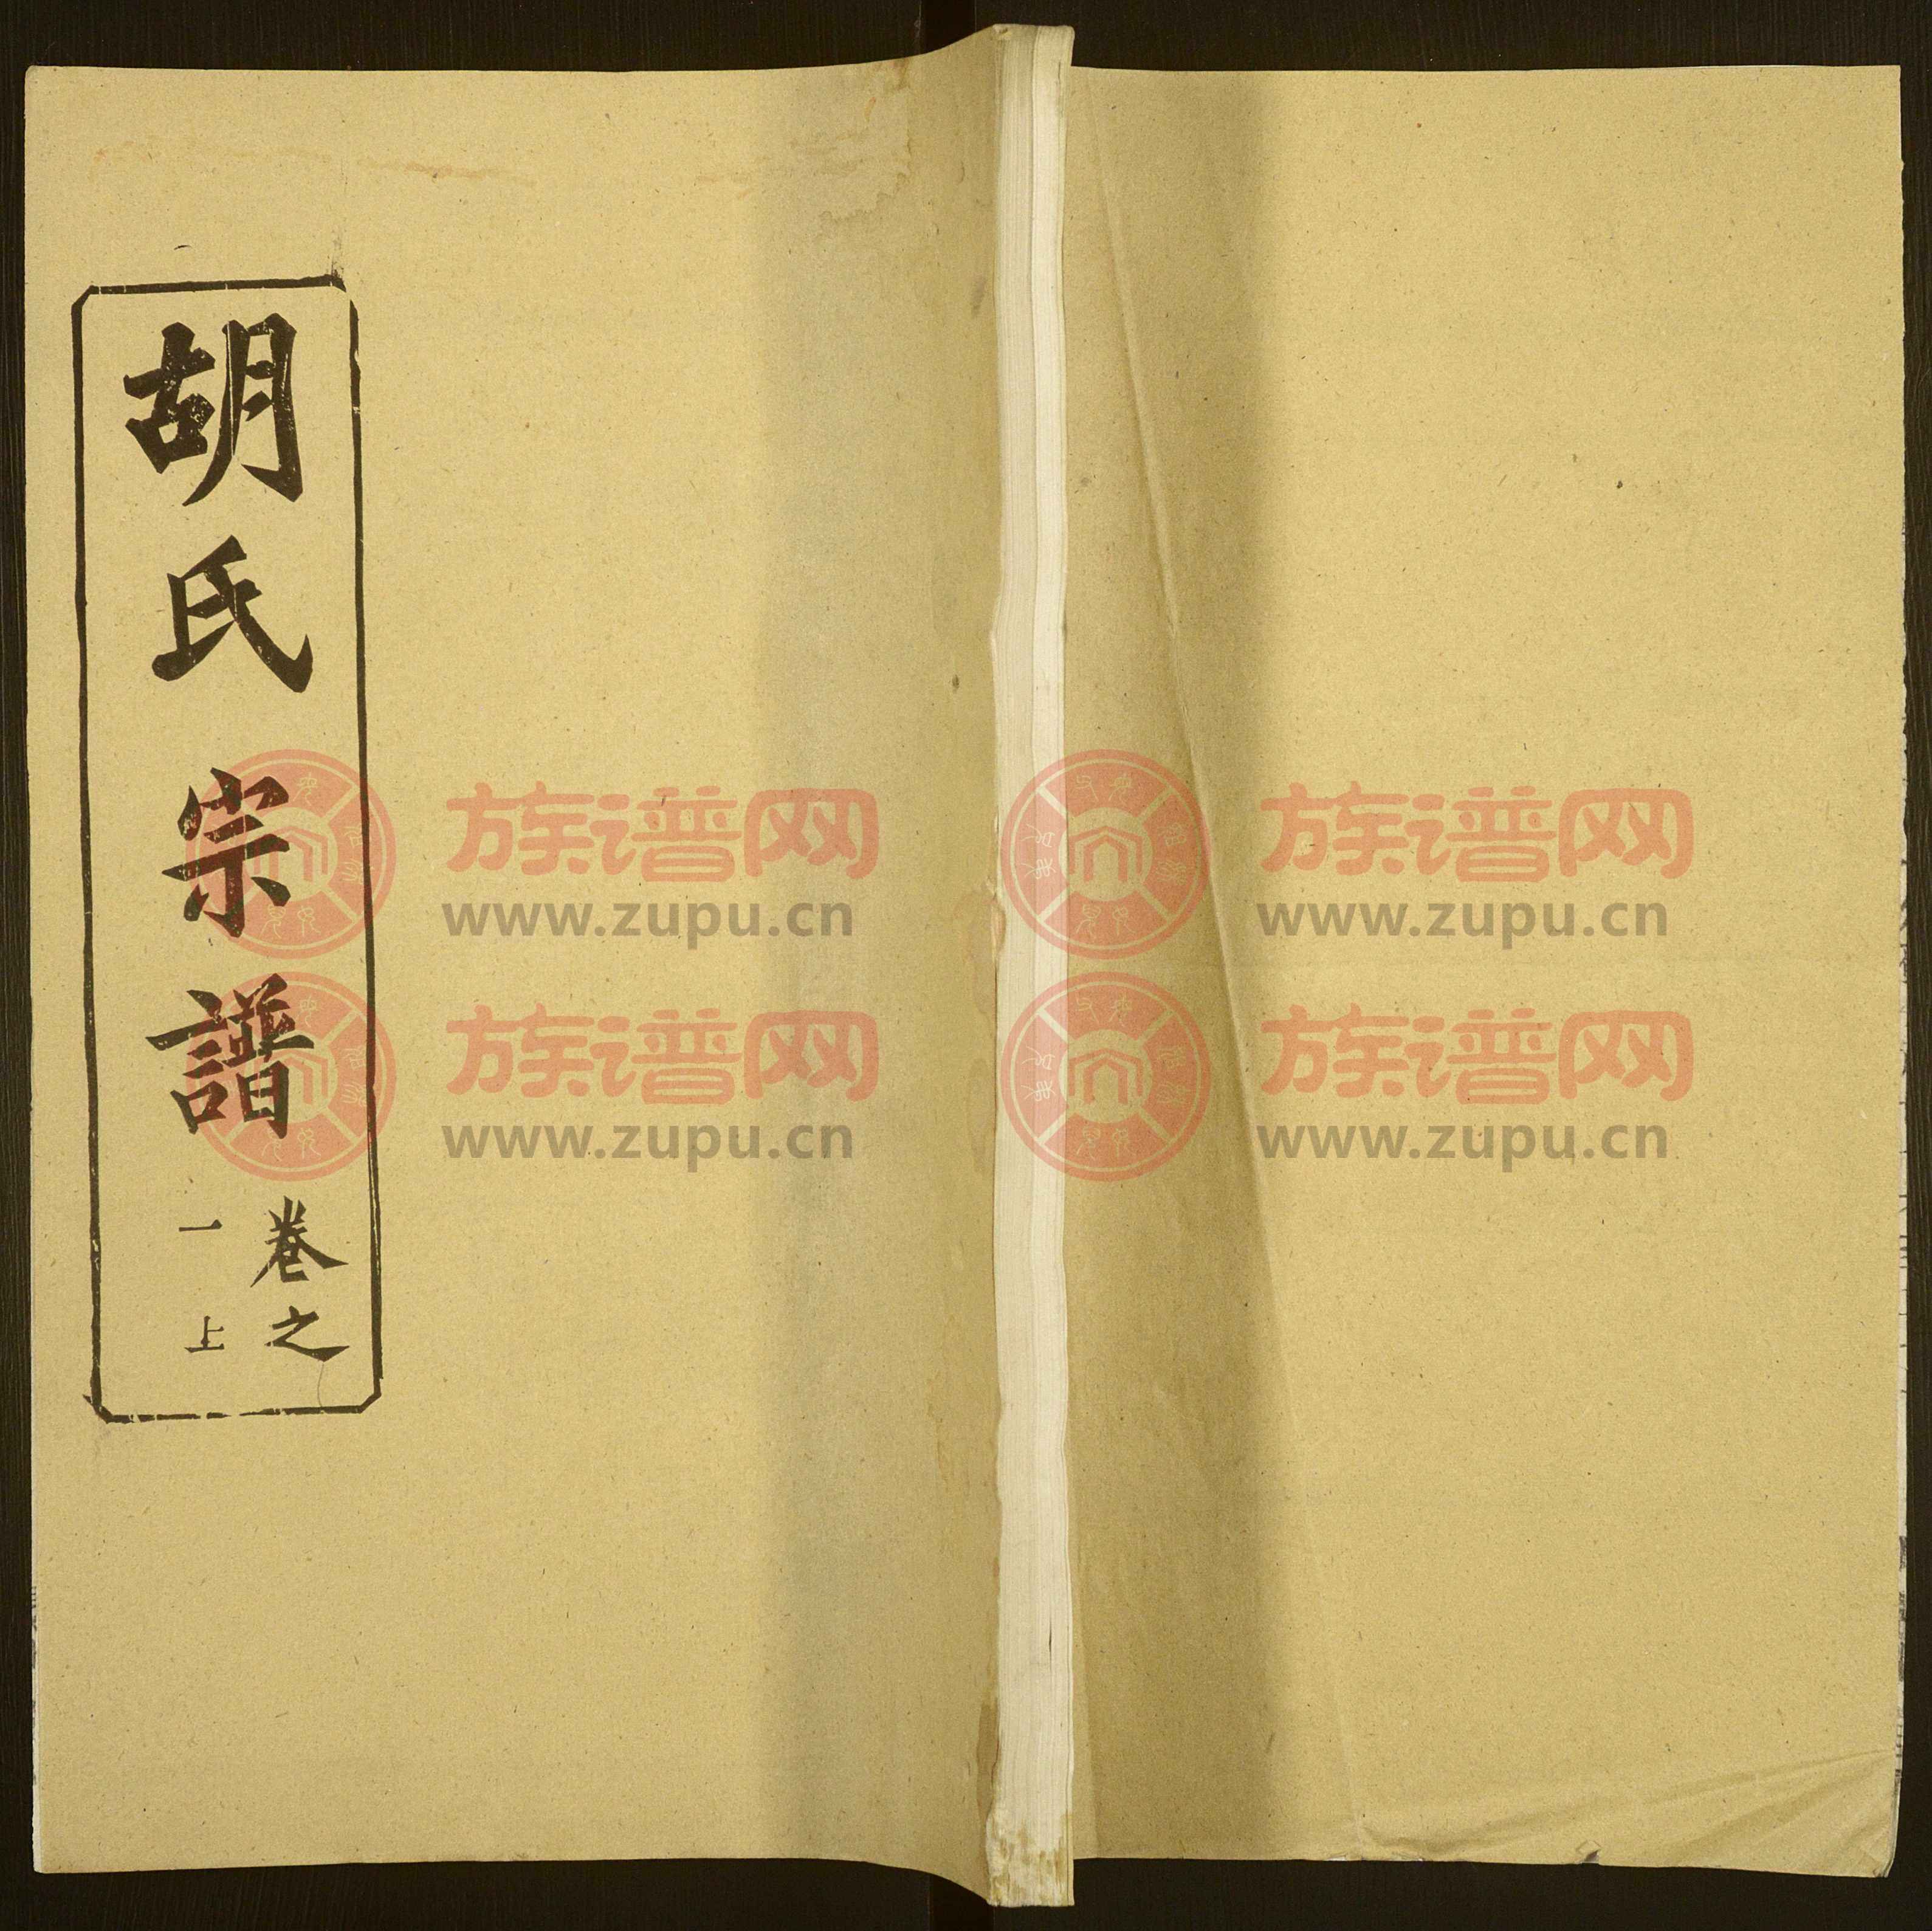 胡氏宗譜
卷之
一上
族谱网
www.zupu.cn
族谱网
www.zupu.cn
族谱网
www.zupu.cn
族谱网
www.zupu.cn